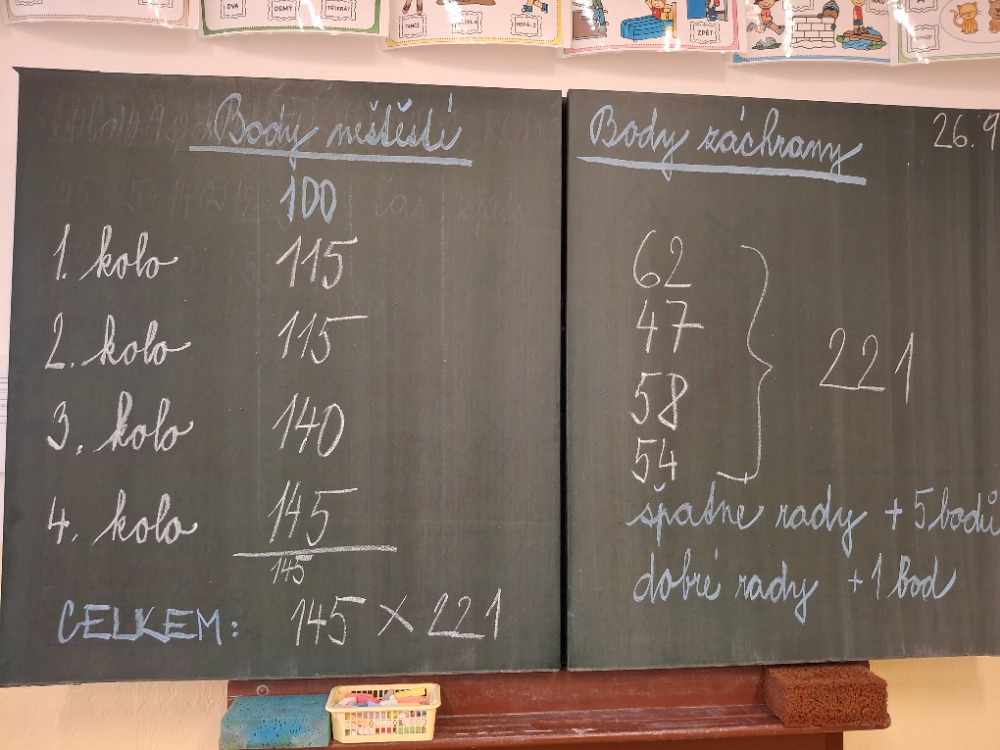 DVA
OSMÝ
TŘIKRÁT
TANČÍ
ZPĚT
Body neštěstí
100
1. kolo 115
2. kolo 115
3. kolo 140
4. kolo 145
145
CELKEM: 145 × 221
Body záchrany
26.9
62
47
58
54
221
špatné rady + 5 bodů
dobré rady + 1 bod